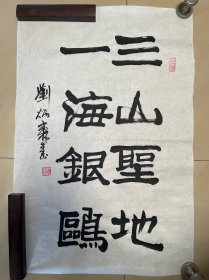 三山聖地
一海銀鷗
劉炳森書